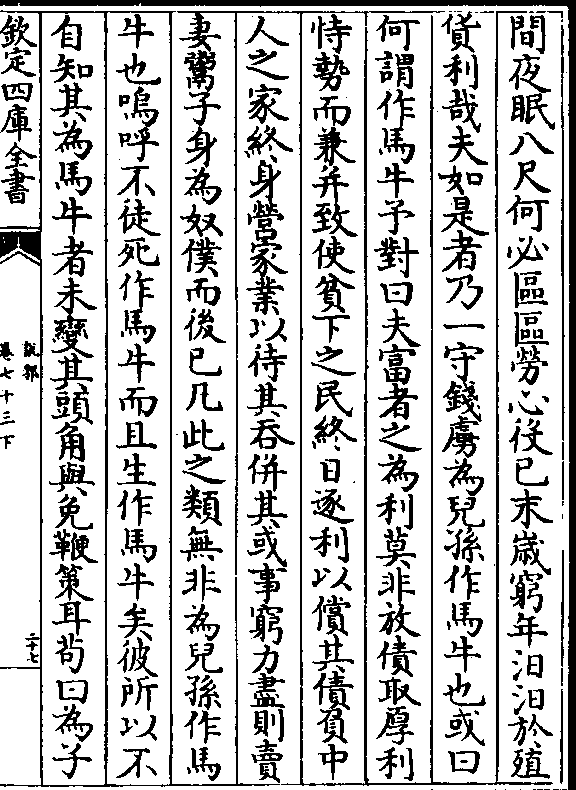 間夜眠八尺何必區區勞心役已末嵗窮年汨汨於殖
貨利哉夫如是者乃一守錢虜為兒孫作馬牛也或曰
何謂作馬牛予對曰夫富者之為利莫非放債取厚利
恃勢而兼并致使貧下之民終日逐利以償其債負中
人之家終身營家業以待其吞併其或事窮力盡則賣
妻鬻子身為奴僕而後已凡此之類無非為兒孫作馬
牛也嗚呼不徒死作馬牛而且生作馬牛矣彼所以不
自知其為馬牛者未變其頭角與免鞭策耳茍曰為子
欽定四庫全書
說郛
卷七十三下
二十七